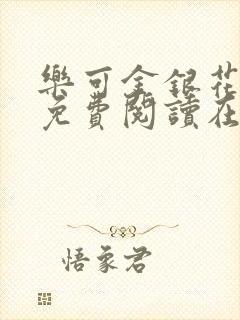 樂可金銀花
免費閱讀在
悟象君